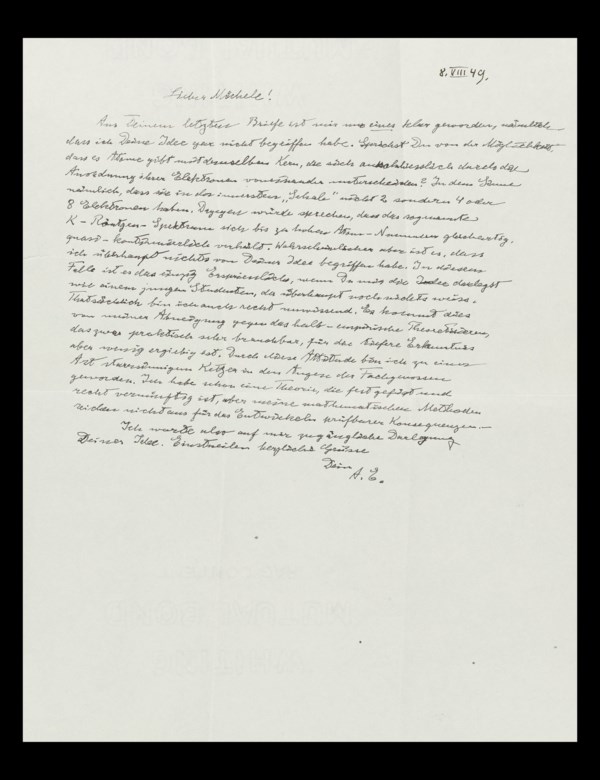 8. VIII 49.
Lieber Michele!
Aus Deinem letzten Briefe ist mir nur eines klar geworden, nämlich
dass ich Deine Idee gar nicht begriffen habe. Sprichst Du von der Möglichkeit
dass es Atome gibt mit demselben Kern, die sich ausschliesslich durch die
Anordnung ihrer Elektronen voneinander unterscheiden? In dem Sinne
nämlich, dass sie in der innersten „Schale" nicht 2 sondern 4 oder
8 Elektronen haben. Dagegen würde sprechen, dass das sogenannte
K-Röntgen-Spektrum sich bis zu hohen Atom-Nummern gleichartig,
quasi-kontinuierlich verhält. Wahrscheinlicher aber ist es, dass
ich überhaupt nichts von Deiner Idee begriffen habe. In diesem
Falle ist es das einzig Erspriessliche, wenn Du mir die Idee darlegst
wie einem jungen Studenten, der überhaupt noch nichts weiss.
Thatsächlich bin ich auch recht unwissend. Es kommt dies
von meiner Abneigung gegen das halb-empirische Theoretisieren,
das zwar praktisch sehr brauchbar, für die tiefere Erkenntnis
aber wenig ergiebig ist. Durch diese Attitude bin ich zu einer
Art starrsinnigen Ketzer in den Augen der Fachgenossen
geworden. Ich habe schon eine Theorie, die fest gefügt und
recht vernünftig ist, aber meine mathematischen Methoden
reichen nicht aus für das Entwickeln prüfbarer Konsequenzen.
Ich warte also auf mir zugängliche Darlegung
Deiner Idee. Einstweilen herzliche Grüsse
Dein
A. E.